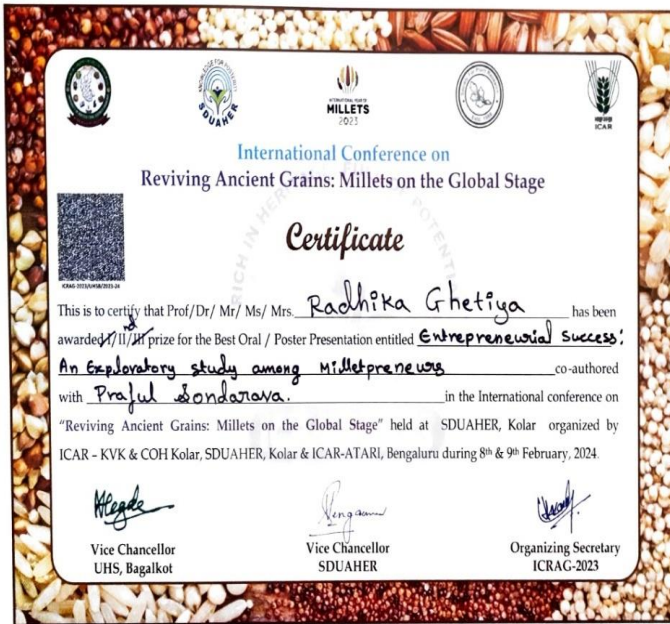 KNOWLEDGE FOR POSTERITY
SDUAHER
INTERNATIONAL YEAR OF
MILLETS
2023
ICAR
International Conference on
Reviving Ancient Grains: Millets on the Global Stage
Certificate
ICRAG-2023/UHSB/2023-24
This is to certify that Prof/Dr/ Mr/ Ms/ Mrs. Radhika Ghetiya has been
awarded I/II/III nd prize for the Best Oral / Poster Presentation entitled Entrepreneurial Success:
An Exploratory study among Milletpreneurs co-authored
with Praful Sondarava. in the International conference on
"Reviving Ancient Grains: Millets on the Global Stage" held at SDUAHER, Kolar organized by
ICAR – KVK & COH Kolar, SDUAHER, Kolar & ICAR-ATARI, Bengaluru during 8th & 9th February, 2024.
Vice Chancellor
UHS, Bagalkot
Vice Chancellor
SDUAHER
Organizing Secretary
ICRAG-2023